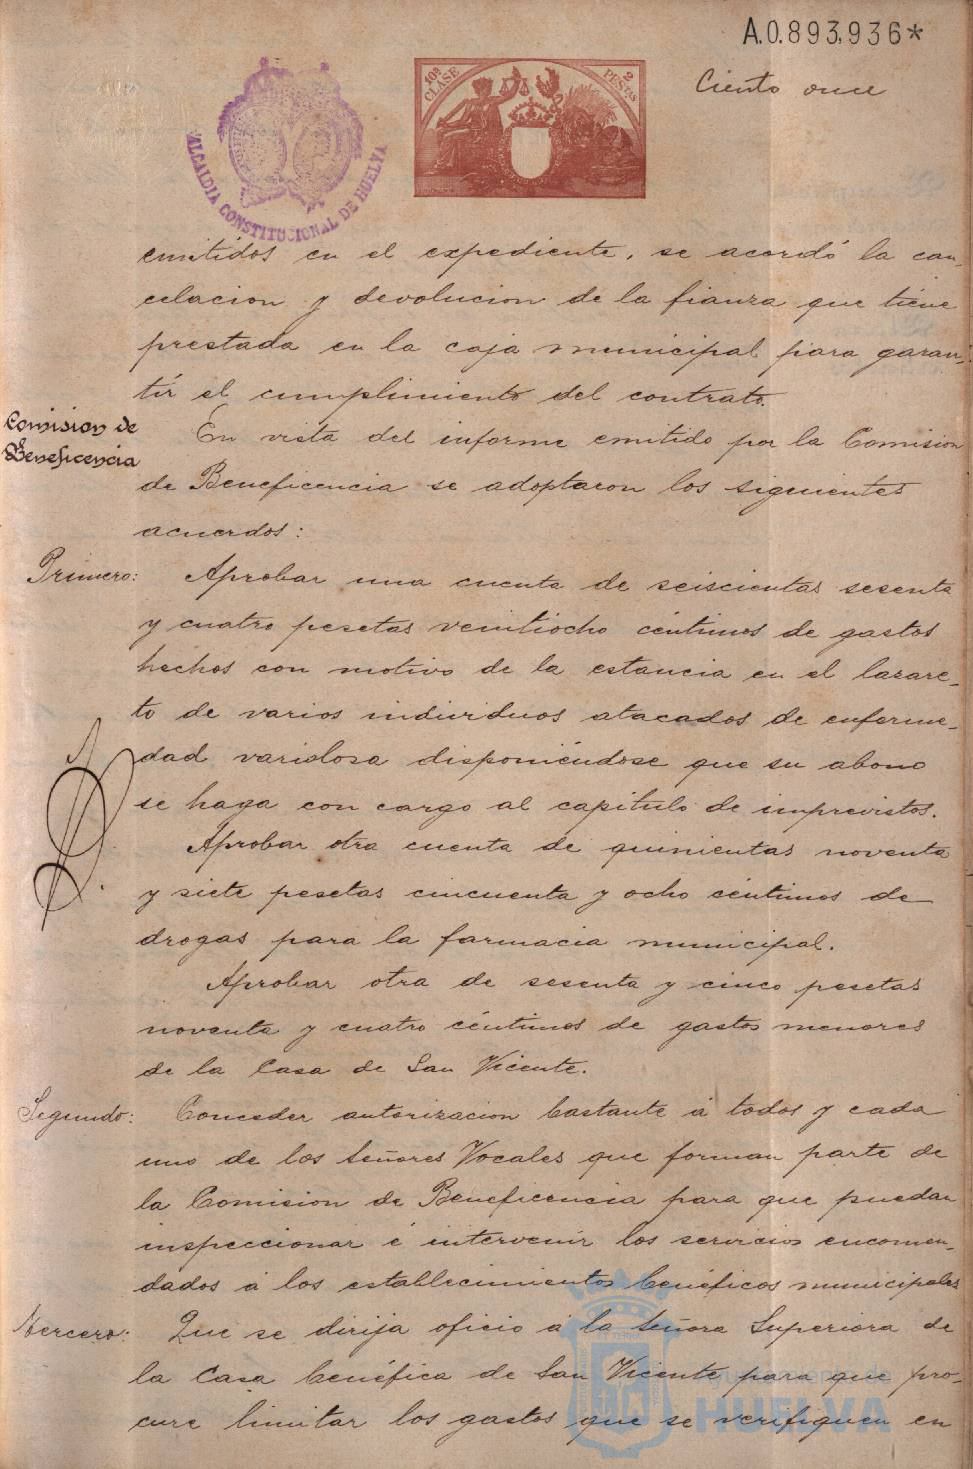 A.0.893,936*
Ciento once
10ª CLASE 2 PESTAS
ALCALDIA CONSTITUCIONAL DE HUELVA
emitidos en el expediente, se acordó la can-
celacion y devolucion de la fianza que tiene
prestada en la caja municipal para garan-
tir el cumplimiento del contrato.
Comision de
Beneficencia
En vista del informe emitido por la Comision
de Beneficencia se adoptaron los siguientes
acuerdos:
Primero: Aprobar una cuenta de seiscientas sesenta
y cuatro pesetas veintiocho céntimos de gastos
hechos con motivo de la estancia en el lazare-
to de varios individuos atacados de enferme-
dad variolosa disponiéndose que su abono
se haga con cargo al capitulo de imprevistos.
Aprobar otra cuenta de quinientas noventa
y siete pesetas cincuenta y ocho céntimos de
drogas para la farmacia municipal.
Aprobar otra de sesenta y cinco pesetas
noventa y cuatro céntimos de gastos menores
de la Casa de San Vicente.
Segundo: Conceder autorizacion bastante á todos y cada
uno de los Señores Vocales que forman parte de
la Comision de Beneficencia para que puedan
inspeccionar é intervenir los servicios encomen-
dados á los establecimientos benéficos municipales
Tercero: Que se dirija oficio á la Señora Superiora de
la Casa benéfica de San Vicente para que pro-
cure limitar los gastos que se verifiquen en
Ayuntamiento de
HUELVA